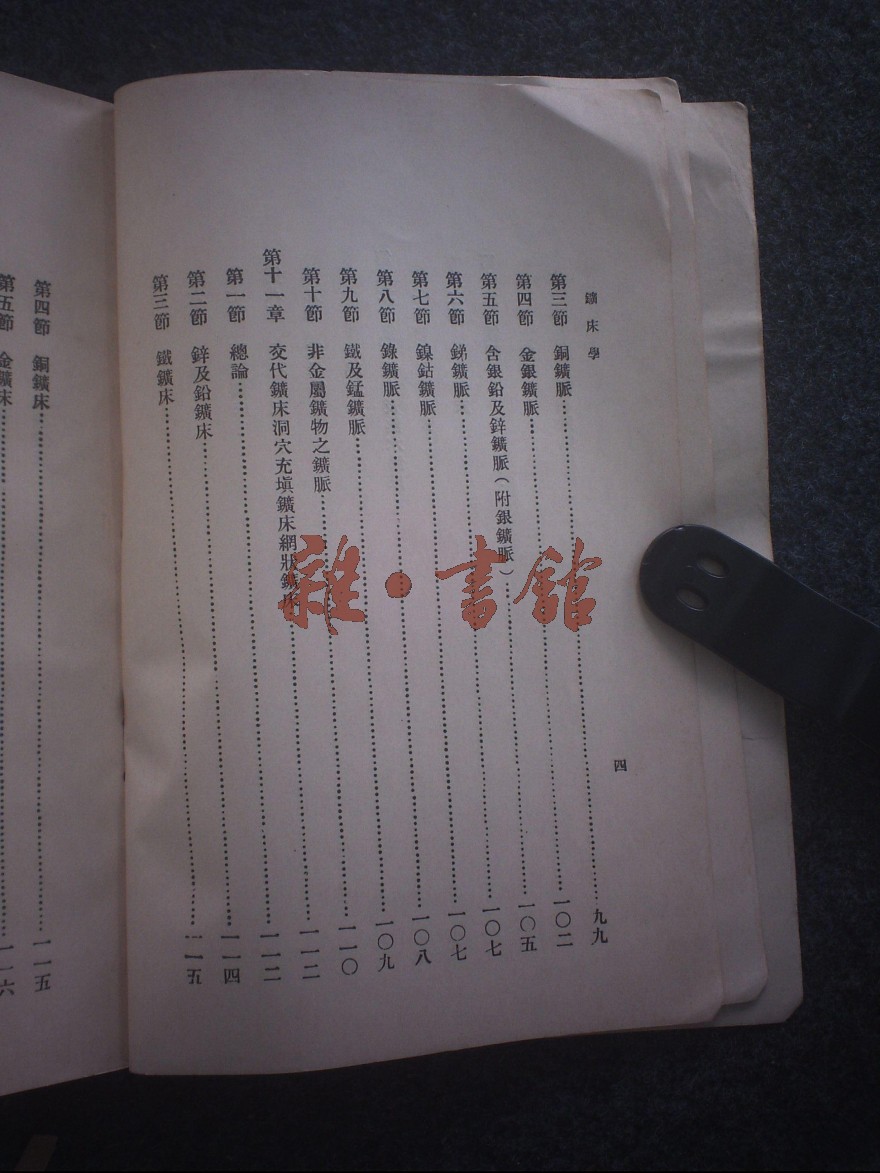 鑛床學
四
第三節 銅鑛脈………九九
第四節 金銀鑛脈………一〇二
第五節 含銀鉛及鋅鑛脈(附銀鑛脈)………一〇五
第六節 銻鑛脈………一〇七
第七節 鎳鈷鑛脈………一〇七
第八節 鑛脈………一〇八
第九節 鐵及錳鑛脈………一〇九
第十節 非金屬鑛物之鑛脈………一一〇
第十一章 交代鑛床洞穴充塡鑛床網狀鑛床………一一二
第一節 總論………一一二
第二節 鋅及鉛鑛床………一一四
第三節 鐵鑛床………一一五
第四節 銅鑛床………一一五
第五節 金鑛床………一一六
雜·書館